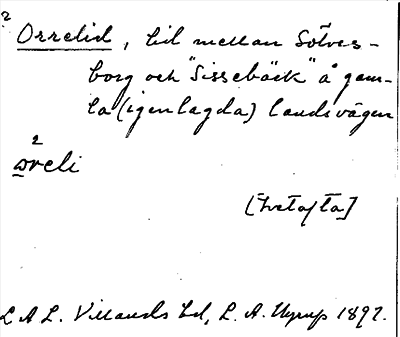 2
Orrelid, lid mellan Sölves-
borg och "Sissebäck" å gam-
la (igenlagda) landsvägen
2
oreli
[Ivetofta]
L A L. Villands hd, L. A. Nyrup 1897.